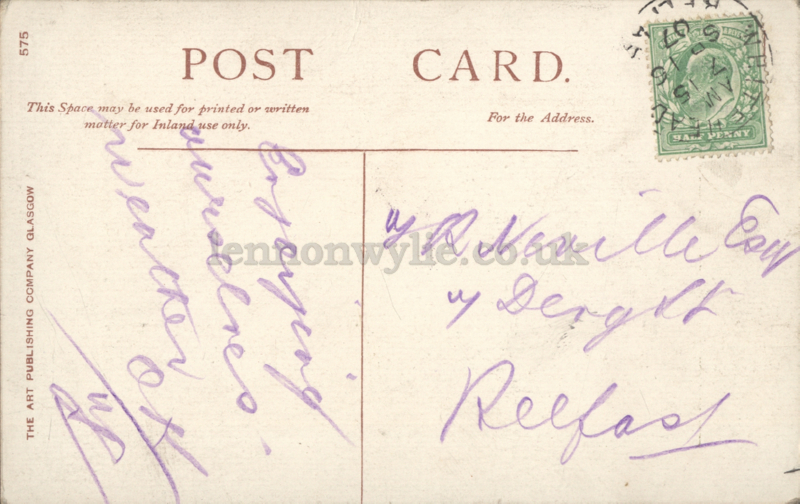 575
POST CARD.
This Space may be used for printed or written
matter for Inland use only.
For the Address.
THE ART PUBLISHING COMPANY GLASGOW
Enjoying
ourselves.
weather
OK
R Neville Esq
Belfast
HALFPENNY
WHITEHEAD
BELFAST
SP 5
07
lennonwylie.co.uk